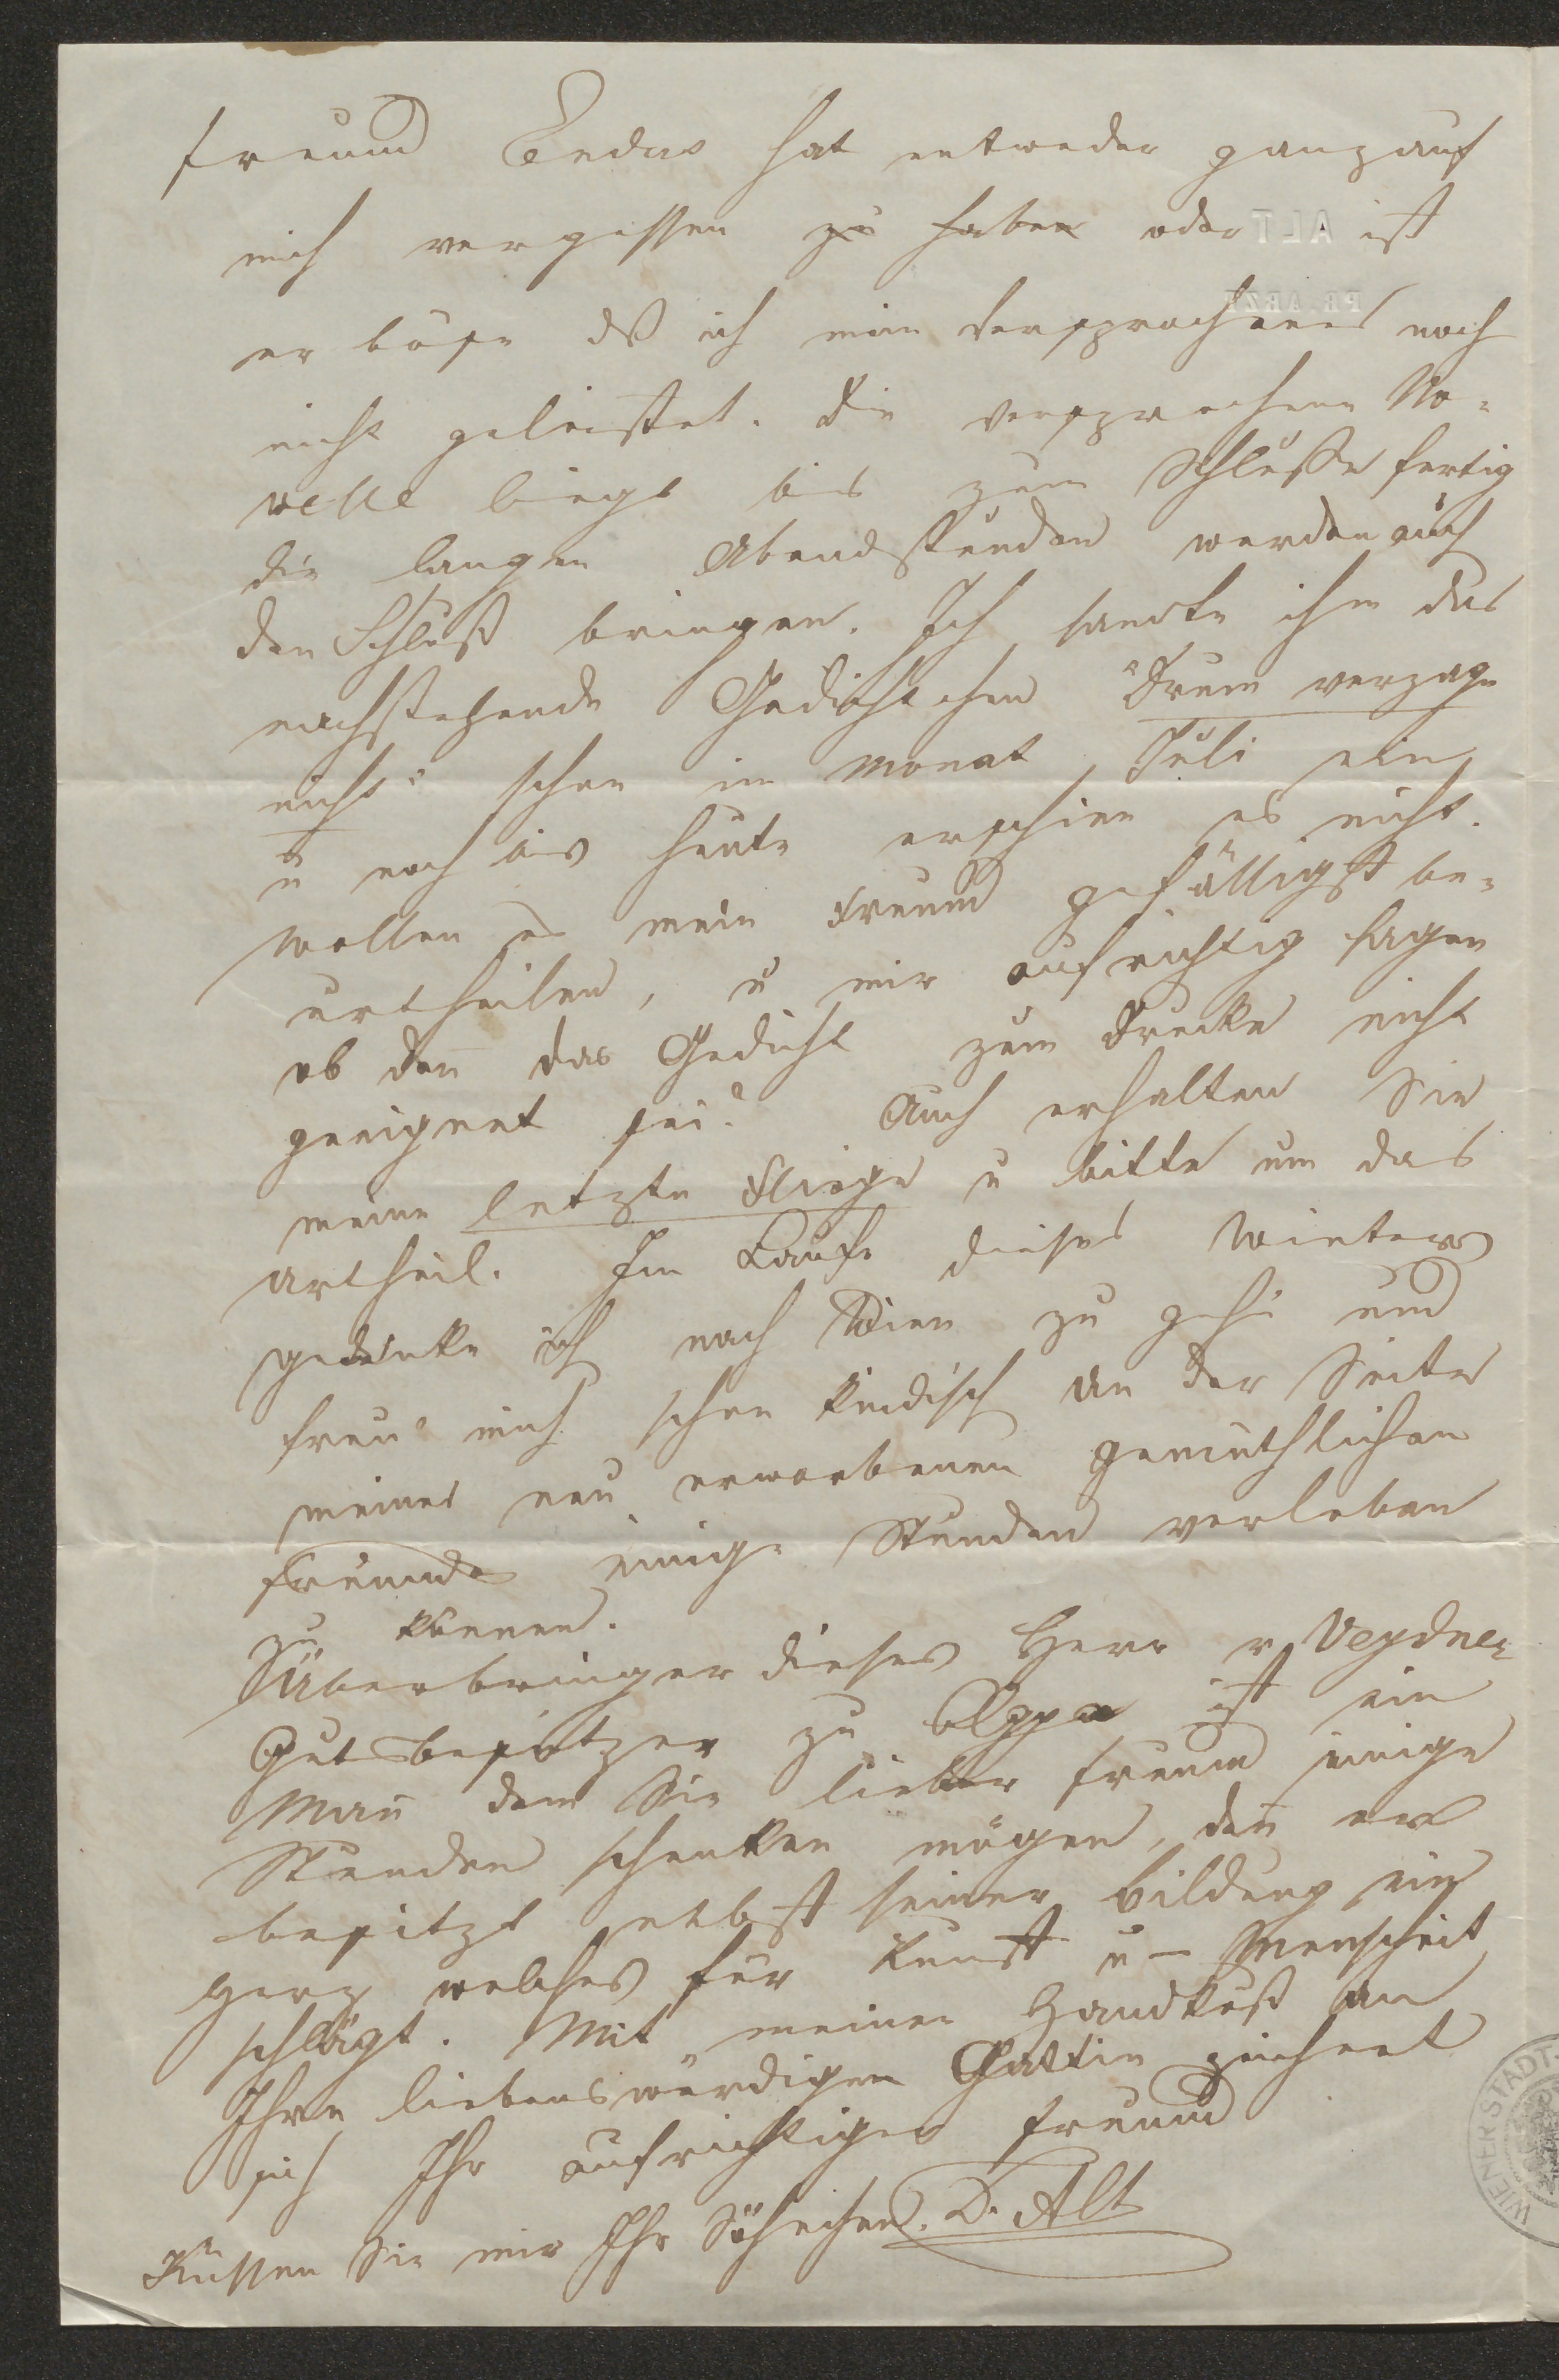 Freund Endar hat entweder ganz auf
mich vergessen zu haben oder ist
er böse dß ich mein Versprochenes noch
nicht geleistet. Die versprochene No=
velle liegt bis zum Schluße fertig
die langen Abendstunden werden auch
den Schluß bringen. Ich sandte ihm das
nachstehende Gedichtchen "Drum verzage
nicht" schon im Monat Juli ein,
u noch bis heute erschien es nicht.
Wollen es mein Freund gefälligst be=
urtheilen, u mir aufrichtig sagen
ob den̄ das Gedicht zum Drucke nicht
geeignet sei? Auch erhalten Sie
meine letzte Fliege u bitte um das
Urtheil. Im Laufe dieses Winters
gedenke ich nach Wien zu gehe und
freu' mich schon kindisch an der Seite
meines neu erworbenen gemüthlichen
Freundes einige Stunden verleben
zu können.
Überbringer dieses Herr v Veydner
Gutsbesitzer zu Appa ist ein
Man̄ dem Sie lieber Freund einige
Stunden schenken mögen, den̄ er
besitzt nebst seiner Bildung ein
Herz welches für Kunst u – Menscheit
schlägt. Mit meinen Handkuß an
Ihre liebenswürdigen Gattin zeichnet
sich Ihr aufrichtiger Freund
Küssen Sie mir Ihr Söhnchen. D. Alt
ALT
PR. ARZT
WIENER STADT-